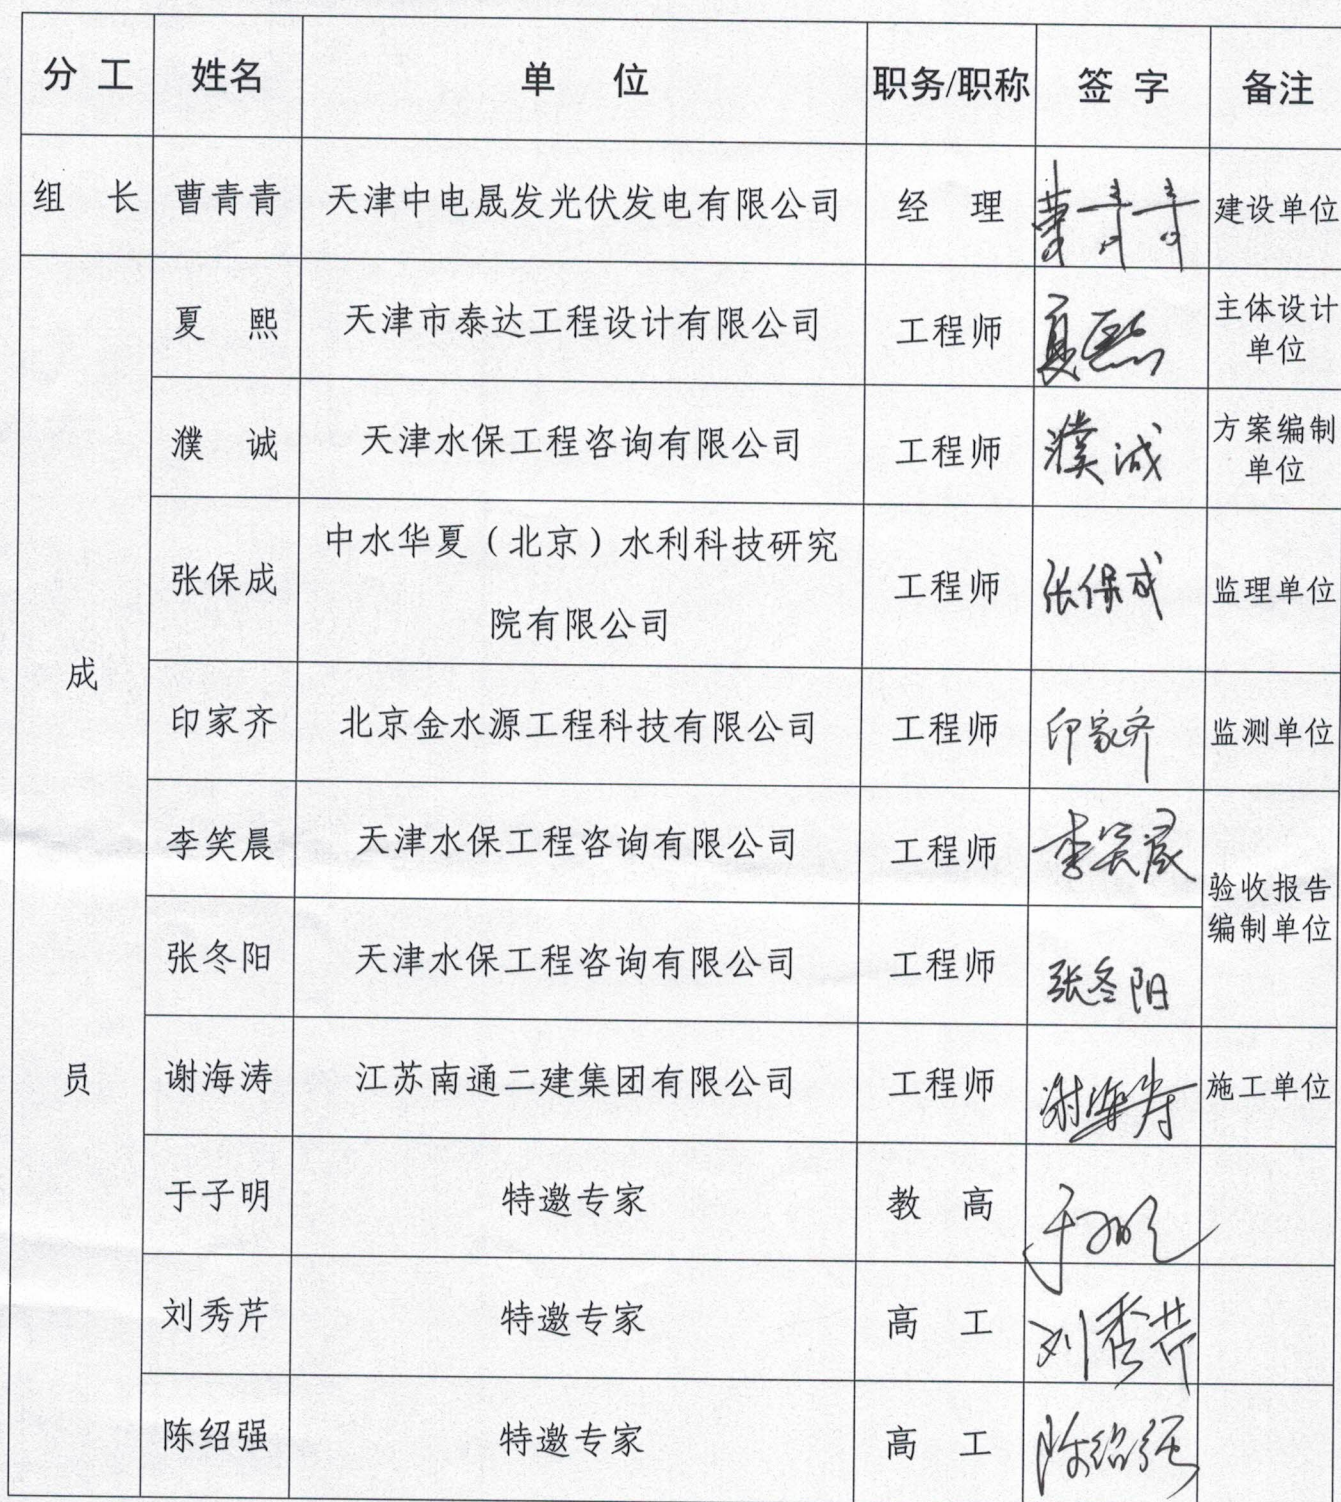 分 工 姓名 单 位 职务/职称 签 字 备注
组 长 曹青青 天津中电晟发光伏发电有限公司 经 理 曹青青 建设单位
夏 熙 天津市泰达工程设计有限公司 工程师 夏熙 主体设计
单位
濮 诚 天津水保工程咨询有限公司 工程师 濮诚 方案编制
单位
张保成 中水华夏（北京）水利科技研究
院有限公司 工程师 张保成 监理单位
成
印家齐 北京金水源工程科技有限公司 工程师 印家齐 监测单位
李笑晨 天津水保工程咨询有限公司 工程师 李笑晨 验收报告
编制单位
张冬阳 天津水保工程咨询有限公司 工程师 张冬阳
员 谢海涛 江苏南通二建集团有限公司 工程师 谢海涛 施工单位
于子明 特邀专家 教 高 于子明
刘秀芹 特邀专家 高 工 刘秀芹
陈绍强 特邀专家 高 工 陈绍强